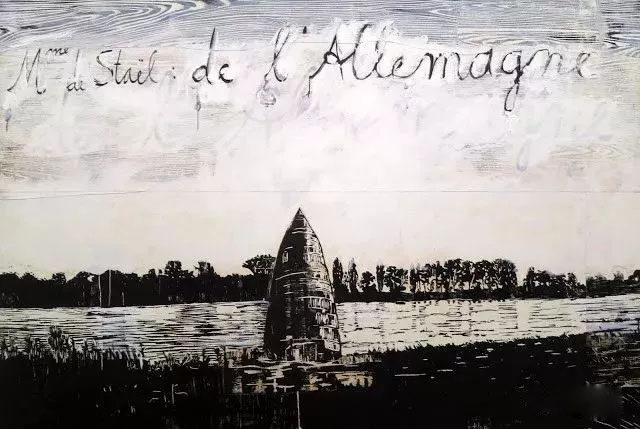 Mme de Staël: de l'Allemagne